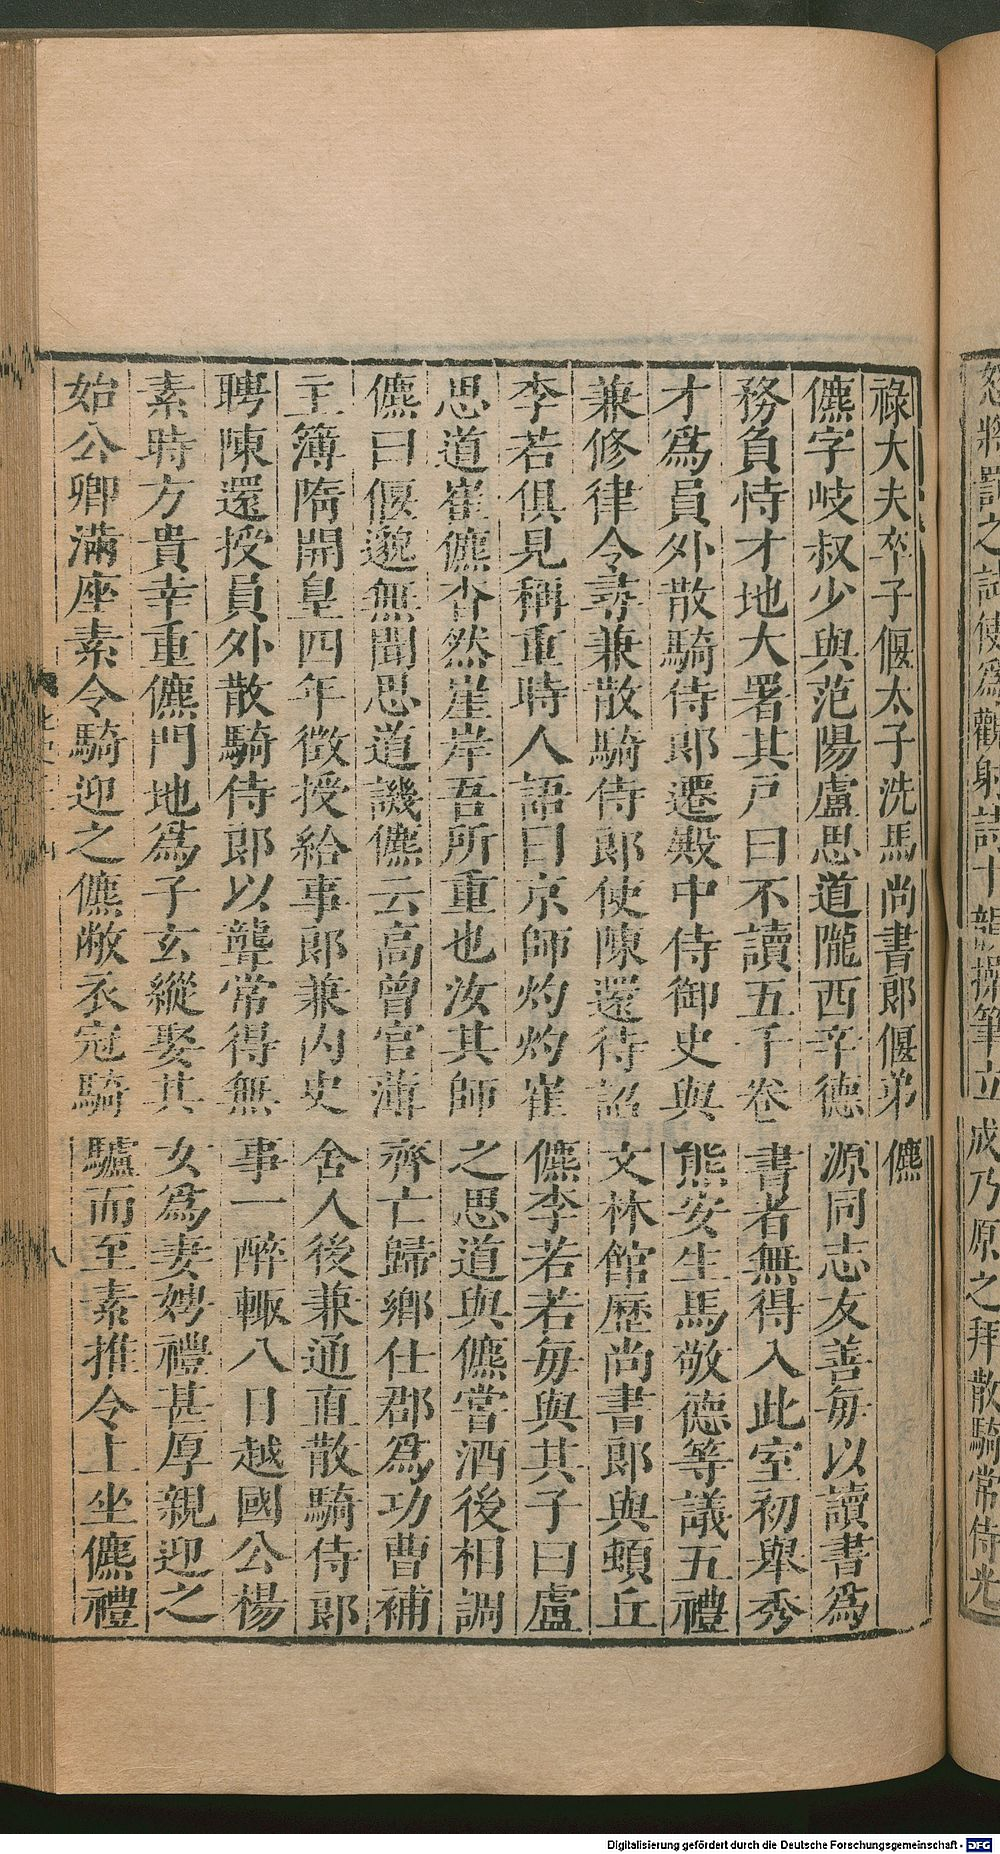 祿大夫卒子偃太子洗馬尚書郎偃弟儦
儦字岐叔少與范陽盧思道隴西辛德源同志友善每以讀書爲
務負恃才地大署其戸曰不讀五千卷書者無得入此室初舉秀
才爲員外散騎侍郎遷殿中侍御史與熊安生馬敬德等議五禮
兼修律令尋兼散騎侍郎使陳還待詔文林館歷尚書郎與頓丘
李若俱見稱重時人語曰京師灼灼崔儦李若若每與其子曰盧
思道崔儦杳然崖岸吾所重也汝其師之思道與儦嘗酒後相調
儦曰偃邈無聞思道譏儦云高曾官薄齊亡歸鄉仕郡爲功曹補
主簿隋開皇四年徴授給事郎兼内史舍人後兼通直散騎侍郎
聘陳還授員外散騎侍郎以聾常得無事一醉輙八日越國公楊
素時方貴幸重儦門地爲子玄縱娶其女爲妻娉禮甚厚親迎之
始公卿滿座素令騎迎之儦敝衣冠騎驢而至素推令上坐儦禮
八
成乃原之拜散騎常侍光
Digitalisierung gefördert durch die Deutsche Forschungsgemeinschaft - DFG